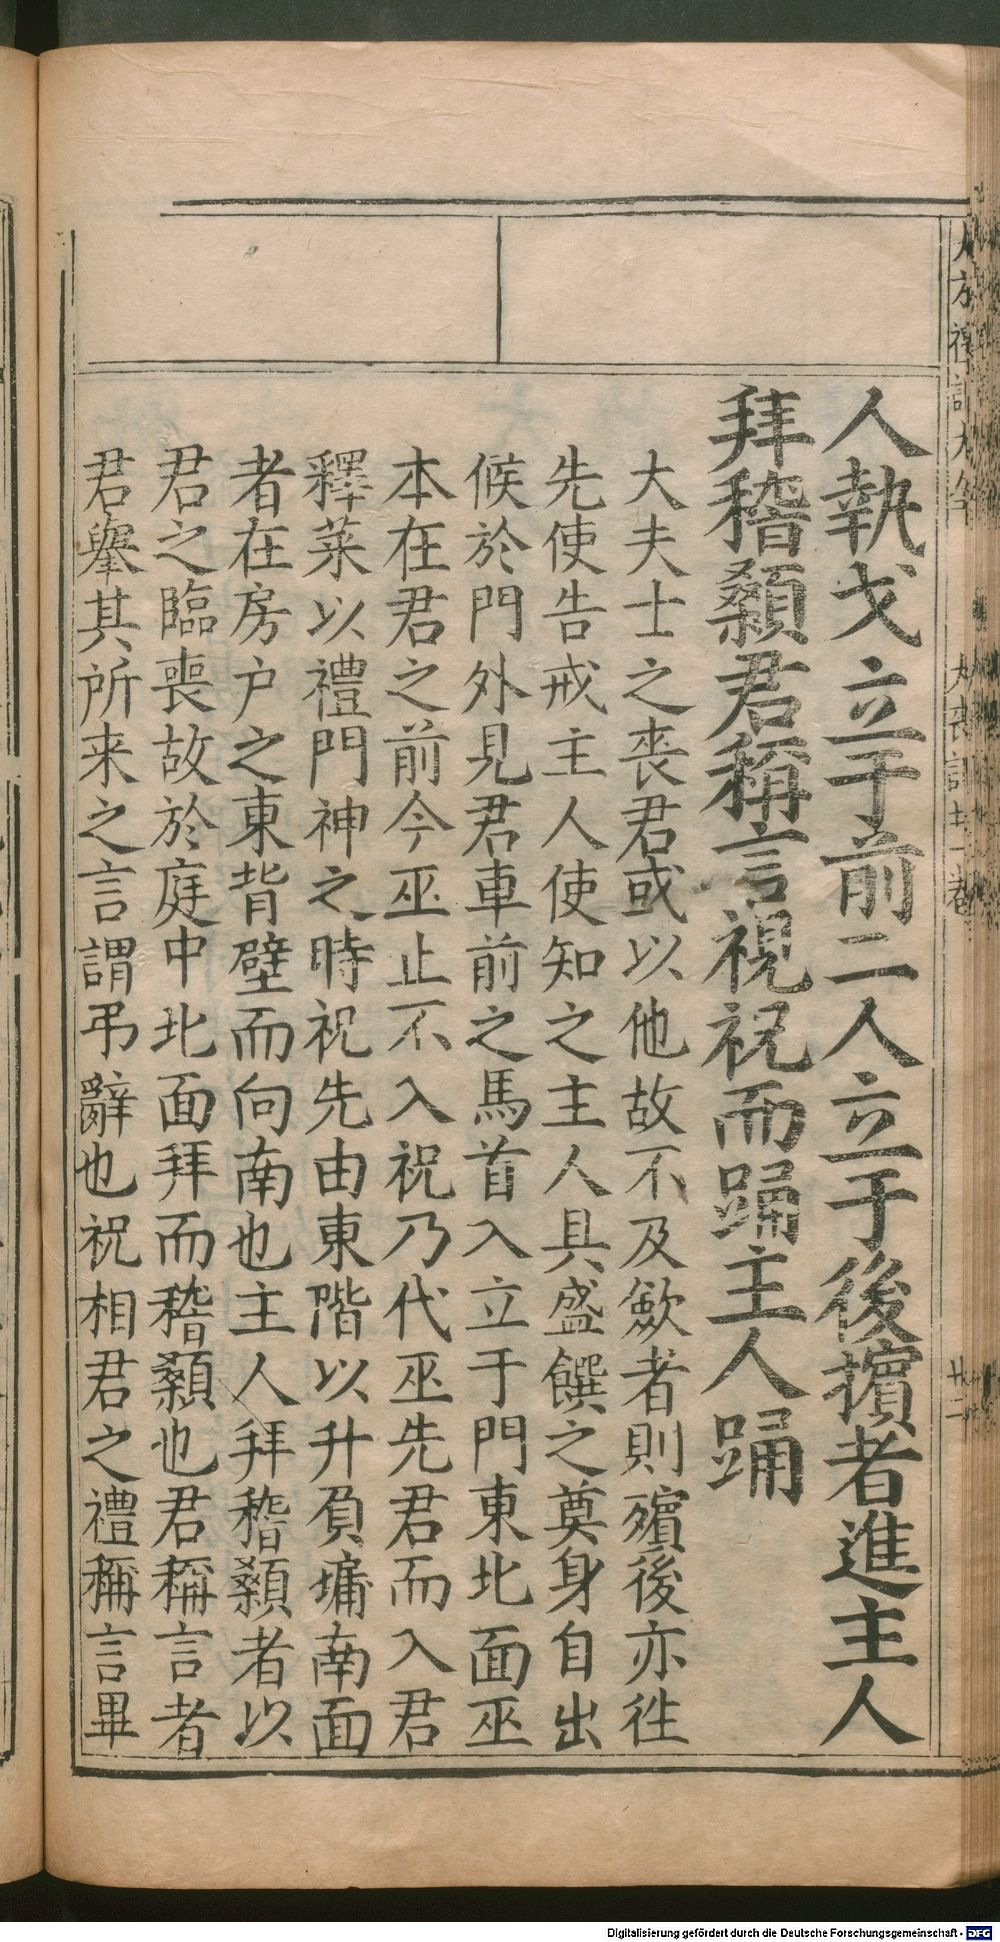 人執戈立于前二人立于後擯者進主人
拜稽顙君稱言視祝而踊主人踊
大夫士之喪君或以他故不及斂者則殯後亦徃
先使告戒主人使知之主人具盛饌之奠身自出
候於門外見君車前之馬首入立于門東北面巫
本在君之前今巫止不入祝乃代巫先君而入君
釋菜以禮門神之時祝先由東階以升負墉南面
者在房户之東背壁而向南也主人拜稽顙者以
君之臨喪故於庭中北面拜而稽顙也君稱言者
君舉其所来之言謂弔辭也祝相君之禮稱言畢
大喪記廿一卷
廿二
Digitalisierung gefördert durch die Deutsche Forschungsgemeinschaft - DFG